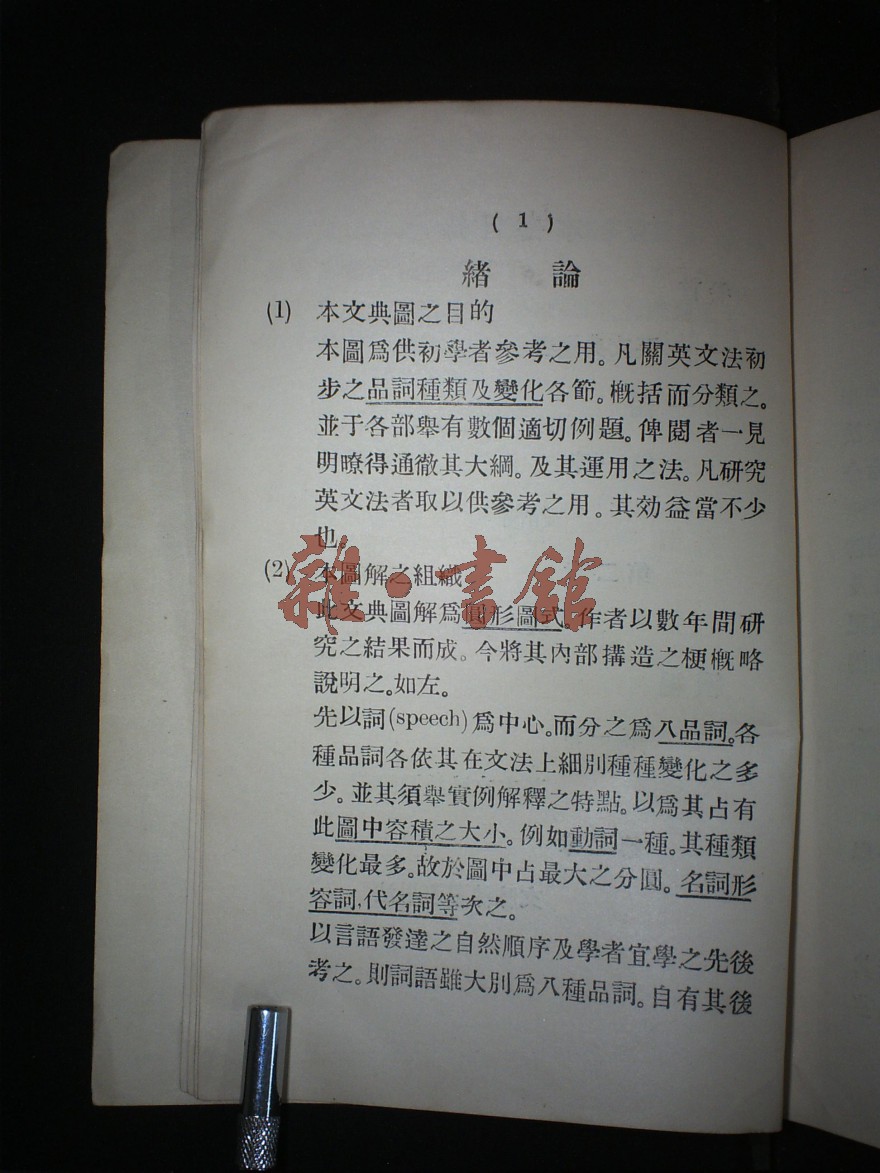 ( 1 )
緒 論
(1) 本文典圖之目的
本圖爲供初學者參考之用。凡關英文法初
步之品詞種類及變化各節。槪括而分類之。
並于各部舉有數個適切例題。俾閱者一見
明暸得通徹其大綱。及其運用之法。凡研究
英文法者取以供參考之用。其効益當不少
也。
(2) 本圖解之組織
此文典圖解爲圓形圖式。作者以數年間研
究之結果而成。今將其內部搆造之梗槪略
說明之。如左。
先以詞(speech)爲中心。而分之爲八品詞。各
種品詞各依其在文法上細別種種變化之多
少。並其須舉實例解釋之特點。以爲其占有
此圖中容積之大小。例如動詞一種。其種類
變化最多。故於圖中占最大之分圓。名詞形
容詞,代名詞等次之。
以言語發達之自然順序及學者宜學之先後
考之。則詞語雖大別爲八種品詞。自有其後
雜·書館